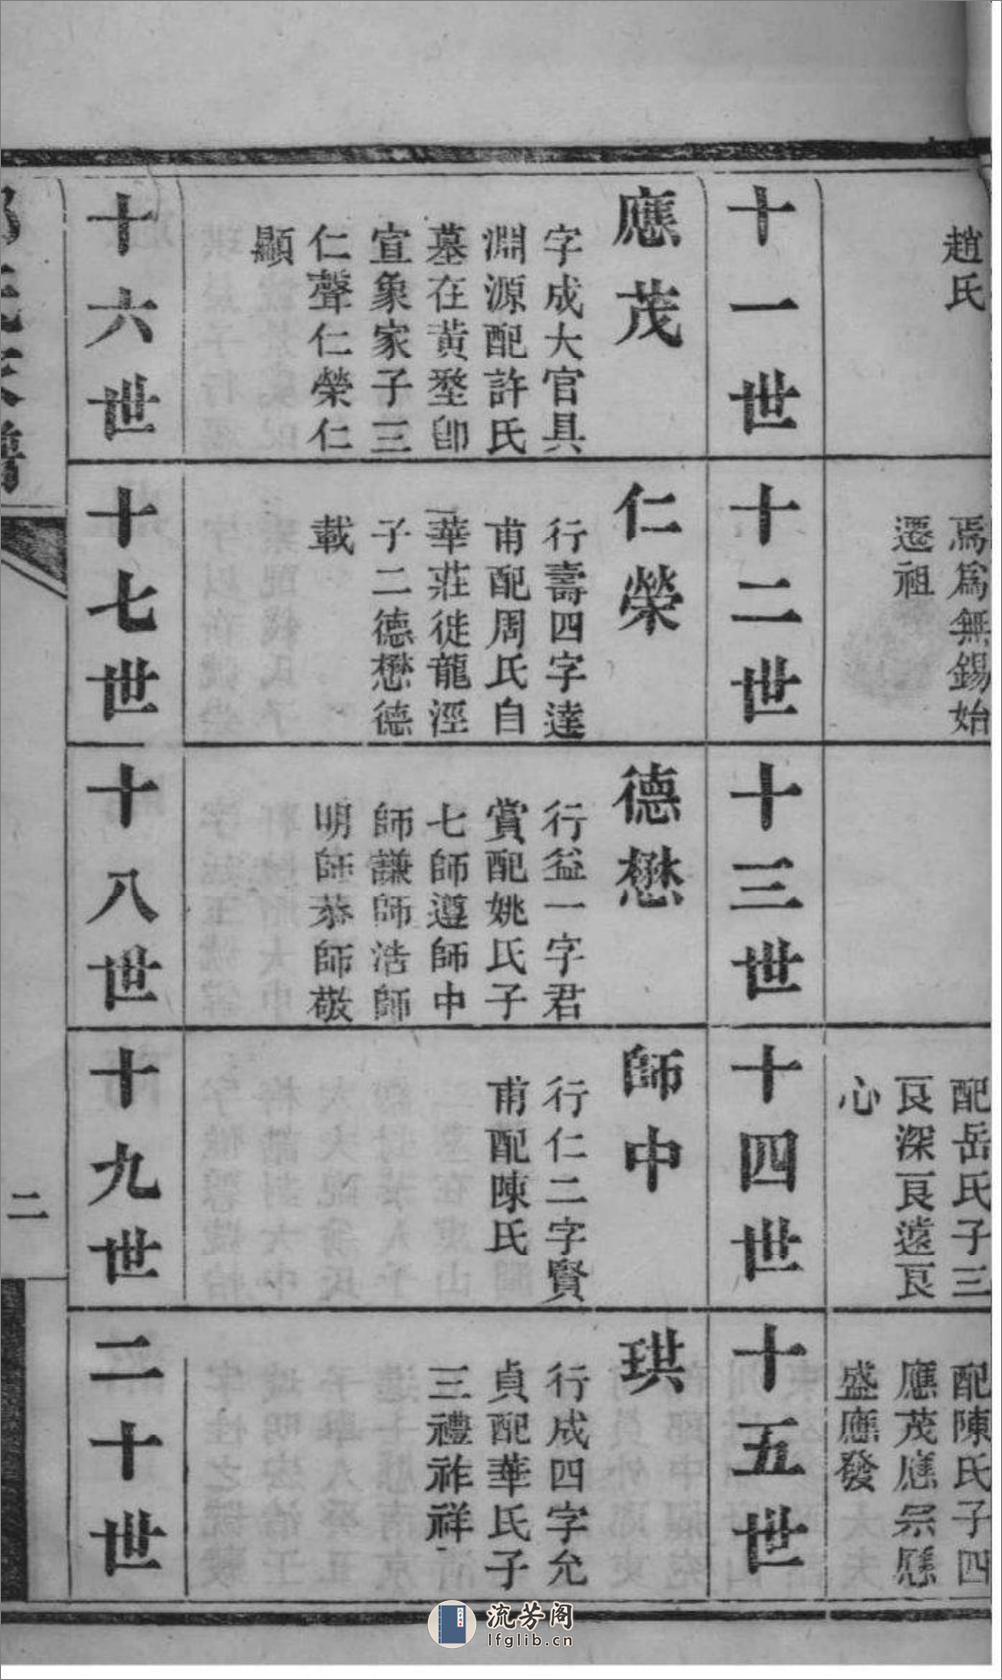 趙氏
焉爲無錫始
遷祖
配岳氏子三
良深良遠良
心
配陳氏子四
應茂應宗應
盛應發
十一世
十二世
十三世
十四世
十五世
應茂
字成大官具
淵源配許氏
墓在黃堊卽
宜象家子三
仁聲仁榮仁
顯
仁榮
行壽四字達
甫配周氏自
華莊徙龍涇
子二德懋德
載
德懋
行益一字君
賞配姚氏子
七師遵師中
師謙師浩師
明師恭師敬
師中
行仁二字賢
甫配陳氏
珙
行成四字允
貞配華氏子
三禮祚祥
十六世
十七世
十八世
十九世
二十世
二
流芳阁
lfglib.cn